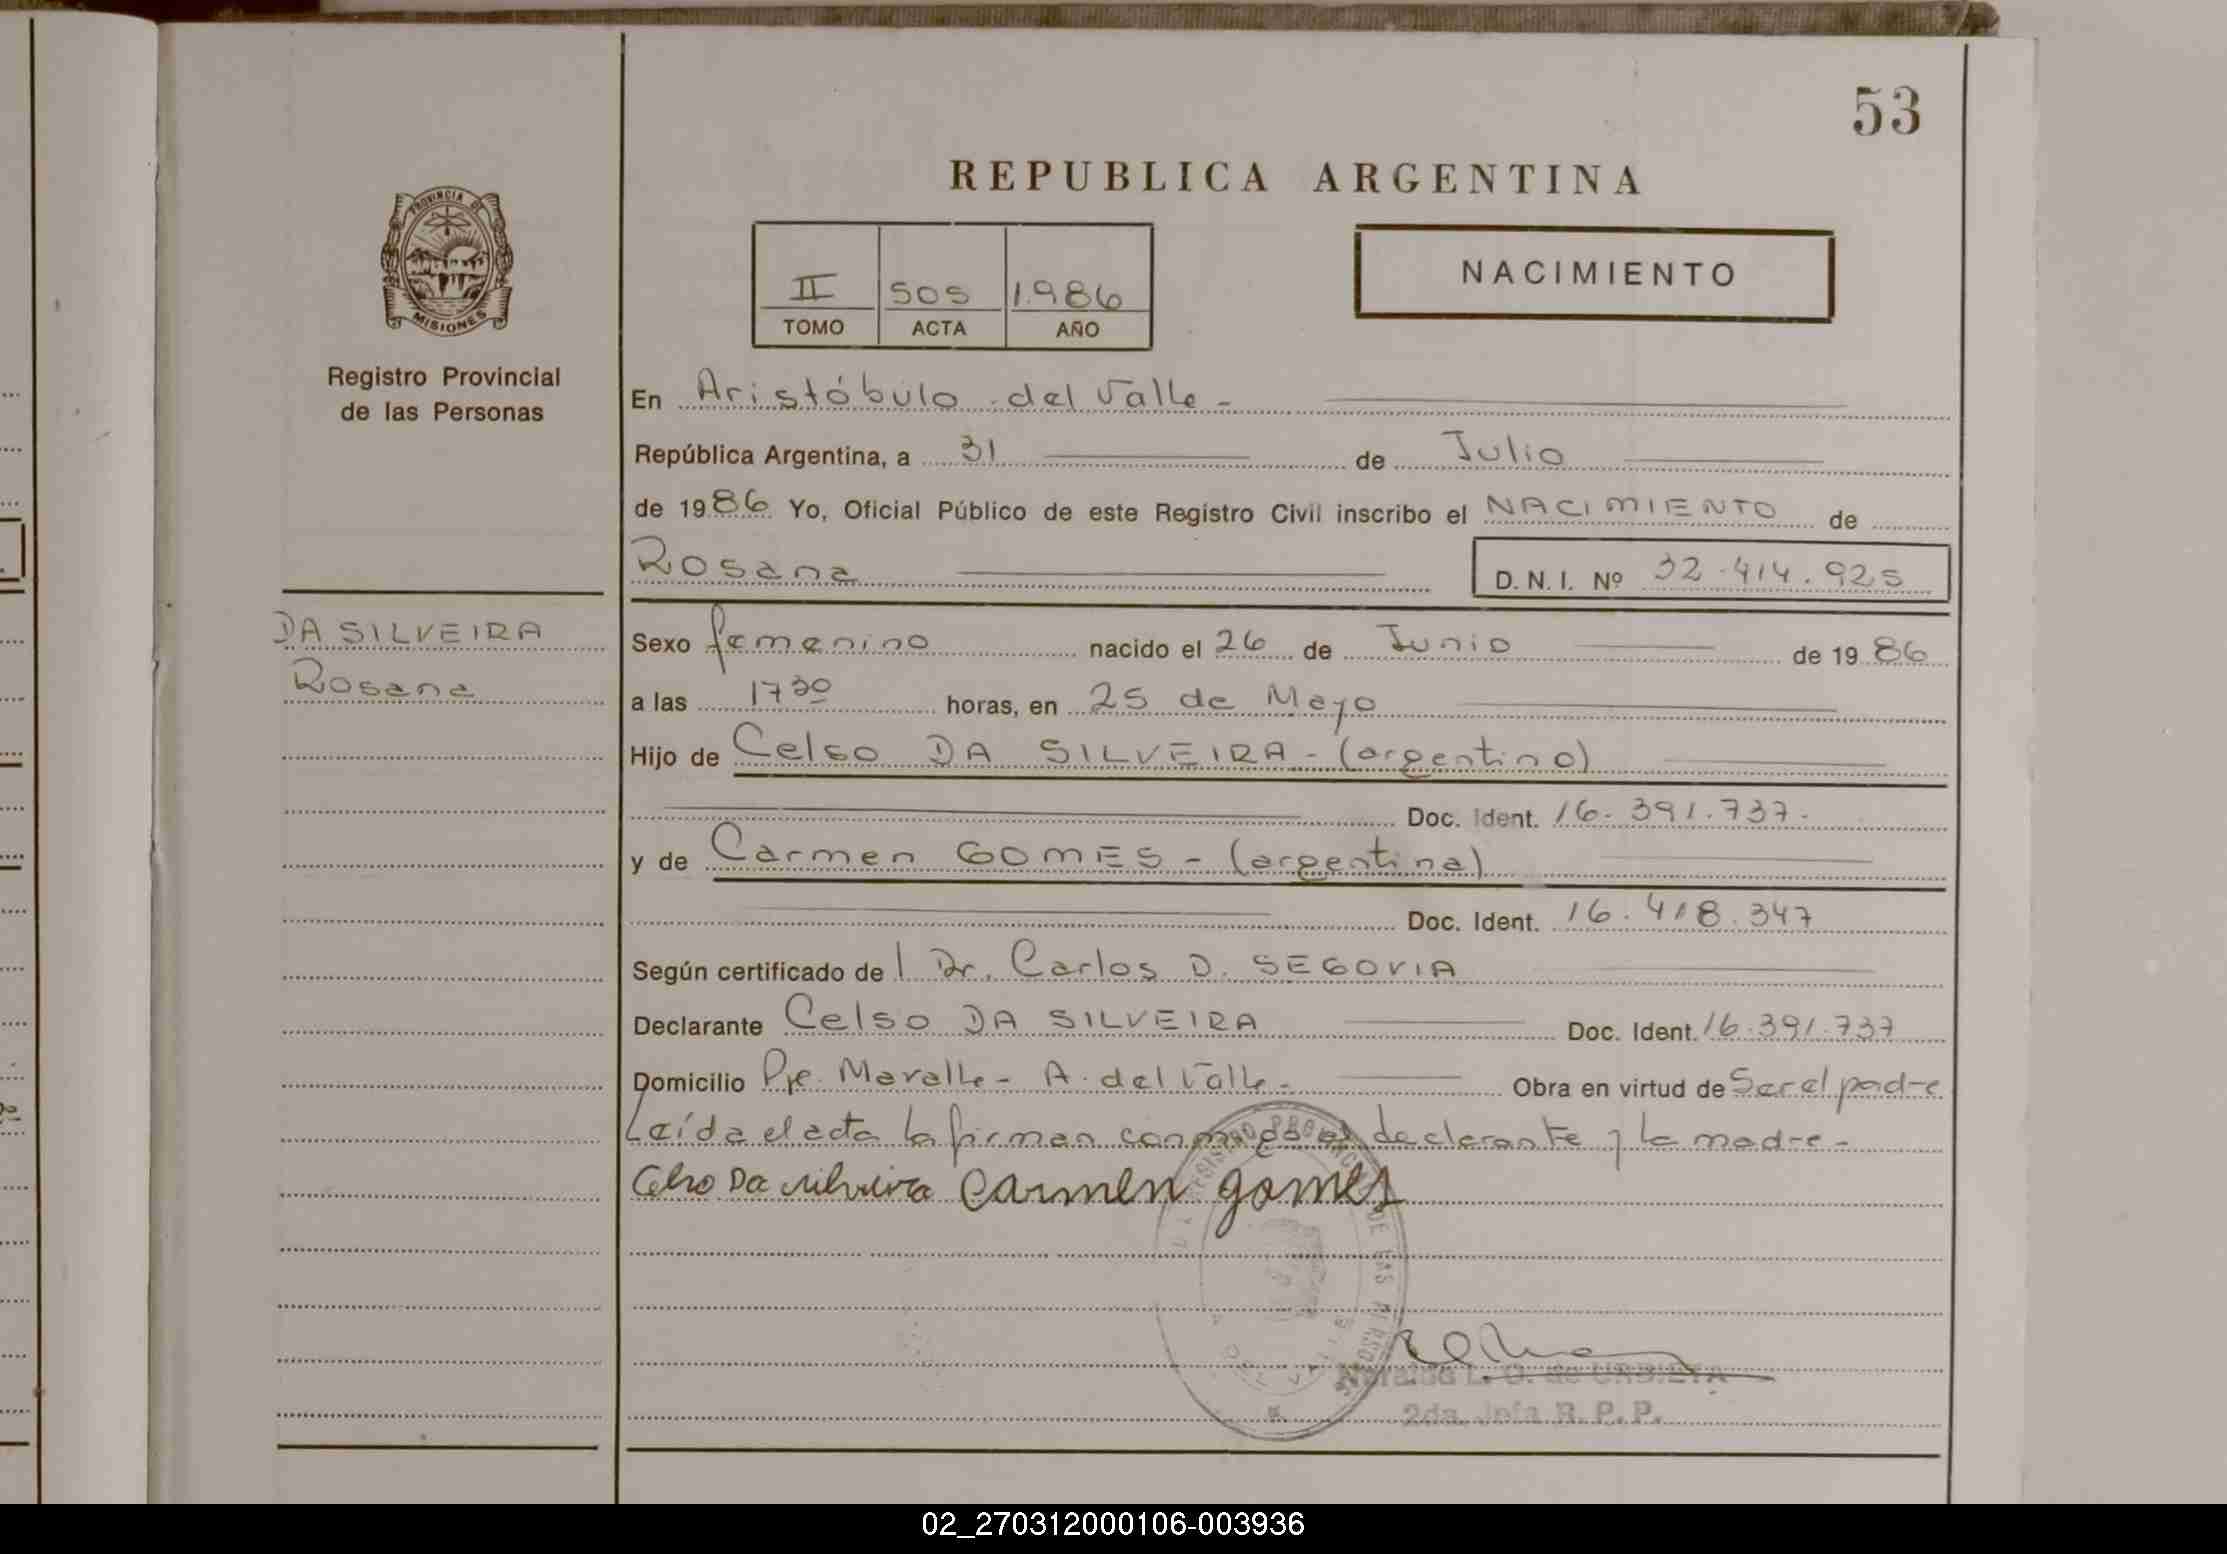 53
REPUBLICA ARGENTINA
PROVINCIA DE
MISIONES
II 505 1986
TOMO ACTA AÑO
NACIMIENTO
Registro Provincial
de las Personas
En Aristóbulo del Valle -
República Argentina, a 31 de Julio
de 1986 Yo, Oficial Público de este Registro Civil inscribo el NACIMIENTO de
Rosana D. N. I. Nº 32.414.925
DA SILVEIRA
Rosana
Sexo femenino nacido el 26 de Junio de 1986
a las 17 30 horas, en 25 de Mayo
Hijo de Celso DA SILVEIRA - (argentino)
Doc. Ident. 16.391.737.
y de Carmen GOMES - (argentina)
Doc. Ident. 16.418.347
Según certificado de l Dr. Carlos D. SEGOVIA
Declarante Celso DA SILVEIRA Doc. Ident. 16.391.737
Domicilio Pje. Maralle - A. del Valle - Obra en virtud de Ser el padre
Leída el acta la firman conmigo el declarante y la madre -
Celso Da silveira Carmen gomes
REGISTRO PROVINCIAL DE LAS PERSONAS
L. O. de URBIETA
2da. Jefa R. P. P.
02_270312000106-003936